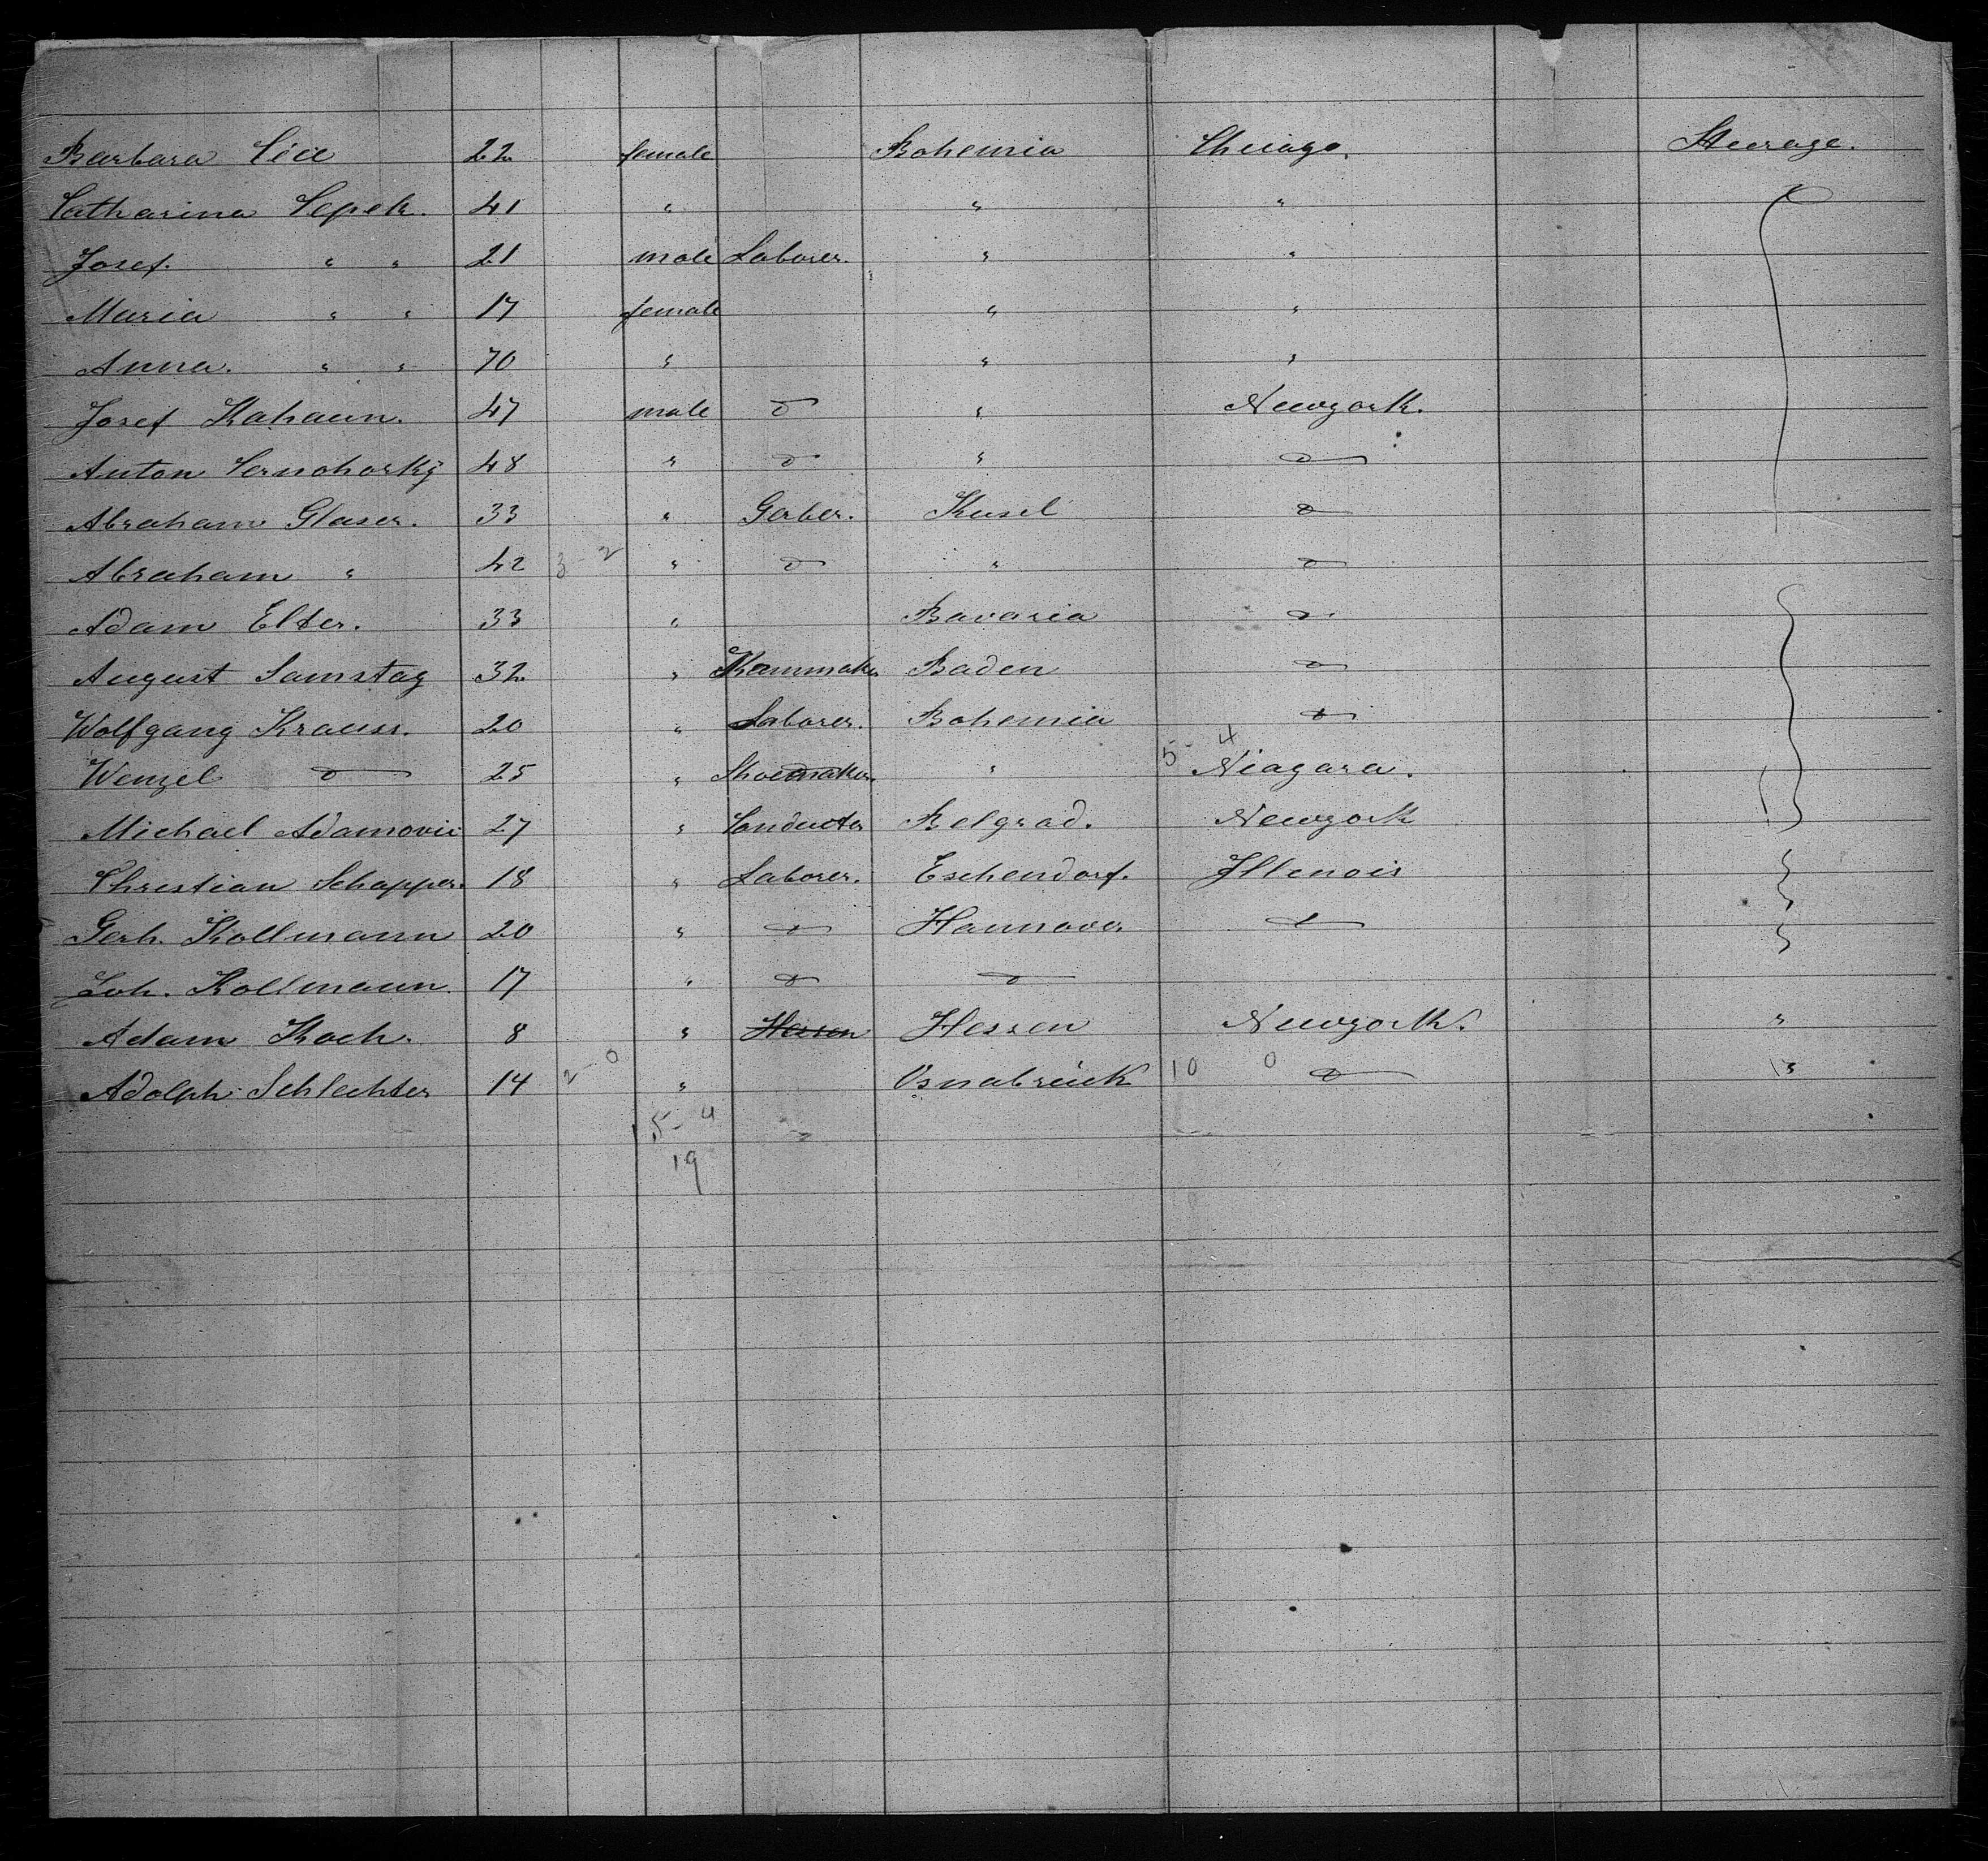 Barbara Cícĕ 22 female Bohemia Chicago. Steerage.
Catharina Cepek. 41 " " "
Josef. " " 21 male Laborer. " "
Maria " " 17 female " "
Anna. " " 70 " " "
Josef Kahaun. 47 male do " Newyork.
Anton Cernohorký 48 " do " do
Abraham Glaser. 33 " Gerber. Kusel do
Abraham " 42 3-2 " do " do
Adam Elter. 33 " Bavaria do
August Samstag 32 " Kammmaker Baden do
Wolfgang Krauss. 20 " Laborer. Bohemia do
Wenzel do 25 " Shoemaker. " 5-4 Niagara.
Michael Adamovic 27 " Conducter Belgrad. Newyork
Christian Schapper. 18 " Laborer. Eschendorf. Illenois
Gerh. Kollmann 20 " do Hannover do
Joh. Kollmann 17 " do do
Adam Koch. 8 " Hessen Hessen Newyork. "
Adolph Schlechter 14 2-0 " Osnabrück 10 0 do "
15-4
19